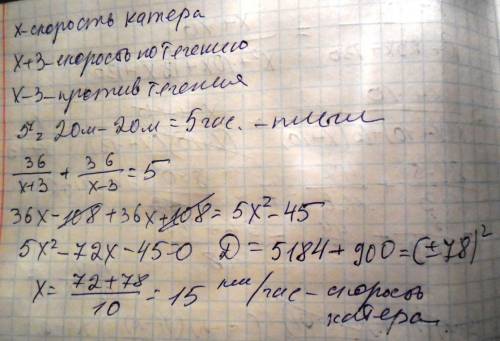 х-скорость катера
х+3-скорость по течению
х-3-против течения
5ч 20м-20м=5час.-плыл
36/х+3 + 36/х-3 = 5
36х-108+36х+108=5х²-45
5х²-72х-45=0 Д=5184+900=(±78)²
х= 72+78/10 =15 км/час-скорость
катера.